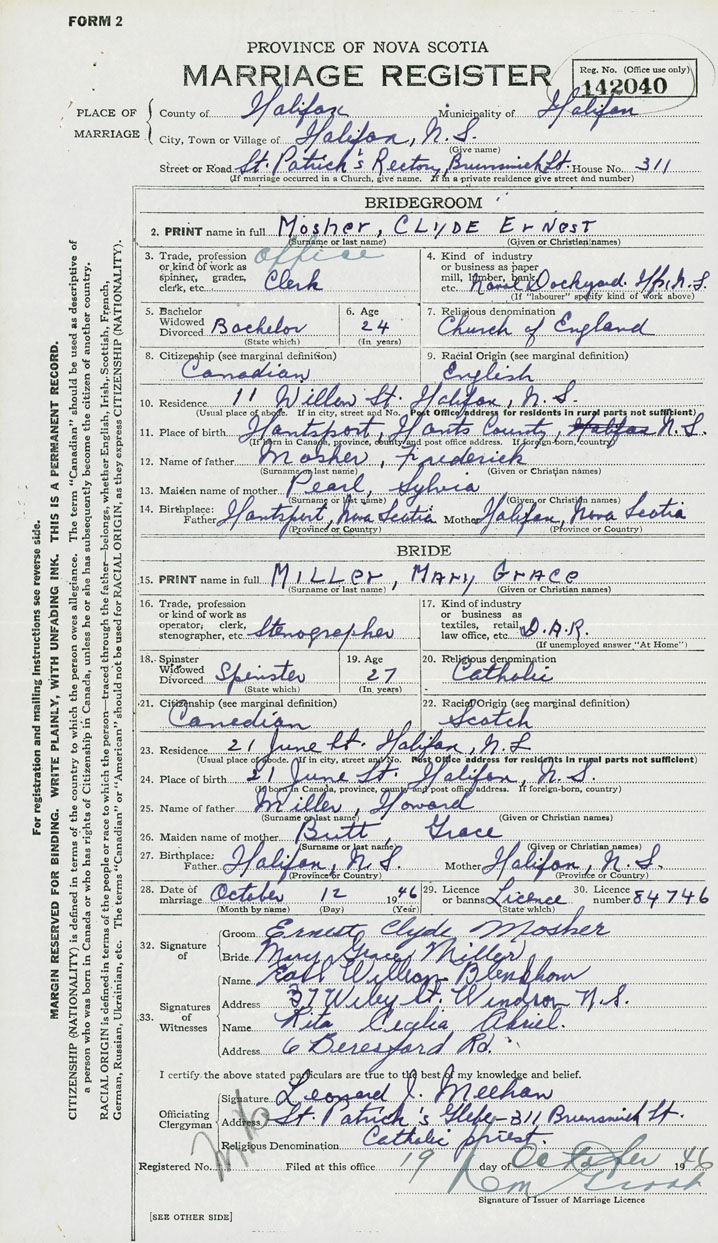 FORM 2
PROVINCE OF NOVA SCOTIA
MARRIAGE REGISTER
Reg. No. (Office use only)
142040
PLACE OF MARRIAGE
County of Halifax Municipality of Halifax
City, Town or Village of Halifax, N.S.
(Give name)
Street or Road St. Patrick's Rectory, Brunswick St. House No. 311
(If marriage occurred in a Church, give name. If in a private residence give street and number)
BRIDEGROOM
2. PRINT name in full Mosher, CLYDE ErNEST
(Surname or last name) (Given or Christian names)
3. Trade, profession or kind of work as spinner, grader, clerk, etc. office Clerk
4. Kind of industry or business as paper mill, lumber, bank, etc. Naval Dockyard. Hfx, N.S.
(If "labourer" specify kind of work above)
5. Bachelor Widowed Divorced Bachelor
(State which)
6. Age 24
(In years)
7. Religious denomination
Church of England
8. Citizenship (see marginal definition)
Canadian
9. Racial Origin (see marginal definition)
English
10. Residence 11 Willow St. Halifax, N.S.
(Usual place of abode. If in city, street and No. Post Office address for residents in rural parts not sufficient)
11. Place of birth Hantsport, Hants County, Halifax N.S.
(If born in Canada, province, county and post office address. If foreign-born, country)
12. Name of father Mosher, Frederick
(Surname or last name) (Given or Christian names)
13. Maiden name of mother Pearl, Sylvia
(Surname or last name) (Given or Christian names)
14. Birthplace: Father Hantsport, Nova Scotia Mother Halifax, Nova Scotia
(Province or Country) (Province or Country)
BRIDE
15. PRINT name in full MILLEr, MARY GRACE
(Surname or last name) (Given or Christian names)
16. Trade, profession or kind of work as operator, clerk, stenographer, etc. Stenographer
17. Kind of industry or business as textiles, retail, law office, etc. D.A.R.
(If unemployed answer "At Home")
18. Spinster Widowed Divorced Spinster
(State which)
19. Age 27
(In years)
20. Religious denomination
Catholic
21. Citizenship (see marginal definition)
Canadian
22. Racial Origin (see marginal definition)
Scotch
23. Residence 21 June St. Halifax, N.S
(Usual place of abode. If in city, street and No. Post Office address for residents in rural parts not sufficient)
24. Place of birth 21 June St. Halifax, N.S.
(If born in Canada, province, county and post office address. If foreign-born, country)
25. Name of father Miller, Howard
(Surname or last name) (Given or Christian names)
26. Maiden name of mother Butt, Grace
(Surname or last name) (Given or Christian names)
27. Birthplace: Father Halifax, N.S. Mother Halifax, N.S.
(Province or Country) (Province or Country)
28. Date of marriage October 12 1946
(Month by name) (Day) (Year)
29. Licence or banns Licence
(State which)
30. Licence number 84746
32. Signature of
Groom Ernest Clyde Mosher
Bride Mary Grace Miller
33. Signatures of Witnesses
Name William
Address 37 Wiley St. Windsor N.S.
Name Rita Cecilia
Address 6 Beresford Rd.
I certify the above stated particulars are true to the best of my knowledge and belief.
Officiating Clergyman
Signature Leonard J. Meehan
Address St. Patrick's Glebe - 311 Brunswick St.
Religious Denomination Catholic priest.
Registered No. Filed at this office 19 day of October 1946
Signature of Issuer of Marriage Licence
[SEE OTHER SIDE]
For registration and mailing instructions see reverse side.
MARGIN RESERVED FOR BINDING. WRITE PLAINLY, WITH UNFADING INK. THIS IS A PERMANENT RECORD.
CITIZENSHIP (NATIONALITY) is defined in terms of the country to which the person owes allegiance. The term "Canadian" should be used as descriptive of
a person who was born in Canada or who has rights of Citizenship in Canada, unless he or she has subsequently become the citizen of another country.
RACIAL ORIGIN is defined in terms of the people or race to which the person—traced through the father—belongs, whether English, Irish, Scottish, French,
German, Russian, Ukrainian, etc. The terms "Canadian" or "American" should not be used for RACIAL ORIGIN, as they express CITIZENSHIP (NATIONALITY).